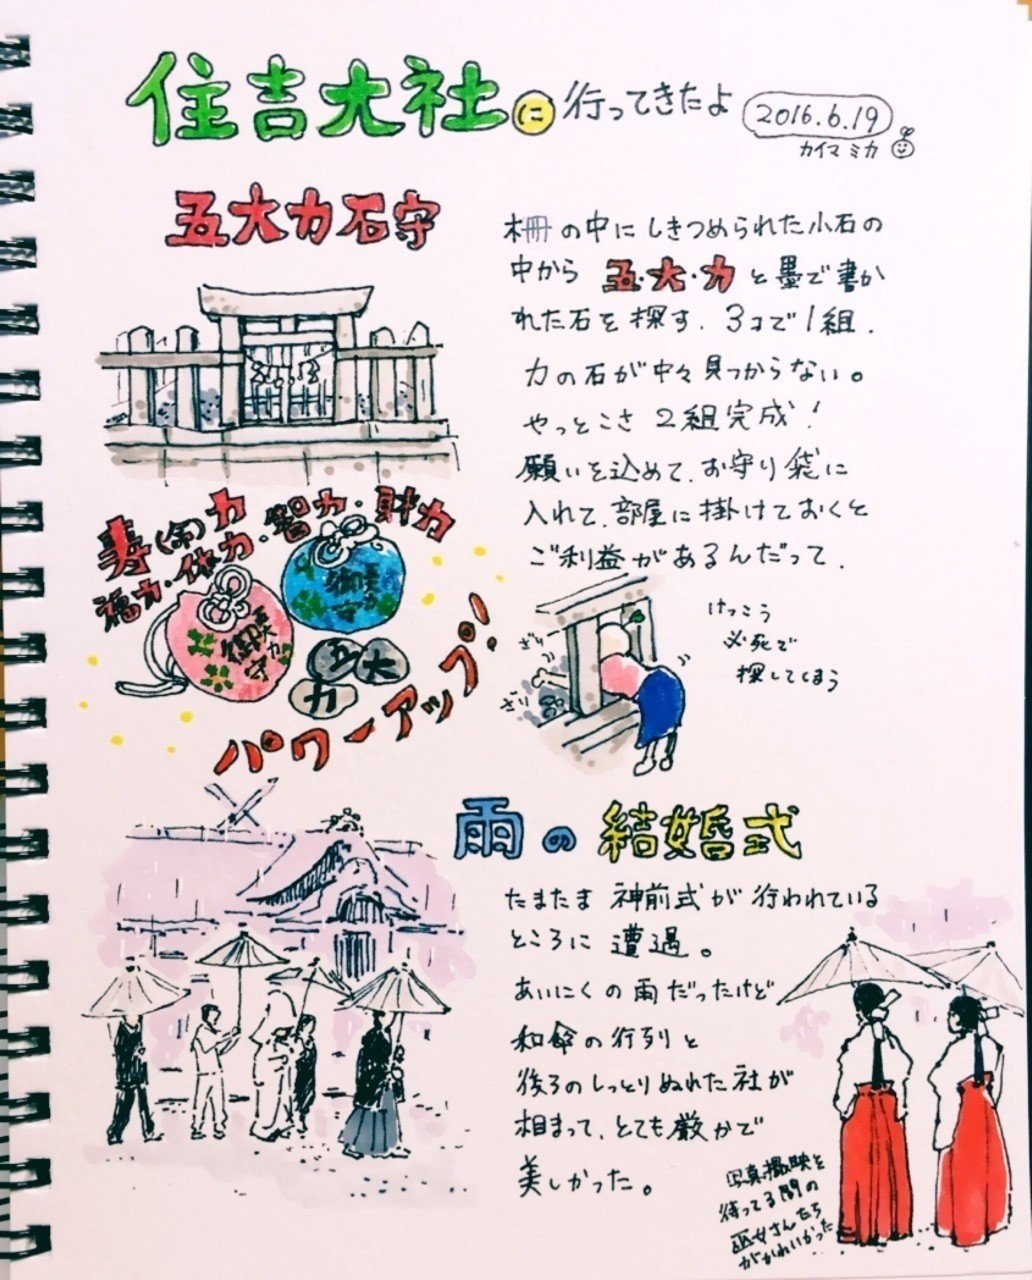 住吉大社に行ってきたよ
2016.6.19
カイマ ミカ
五大力石守
柵の中にしきつめられた小石の
中から 五・大・力 と墨で書か
れた石を探す. 3コで1組.
力の石が中々見つからない。
やっとこさ 2組完成!
願いを込めて、お守り袋に
入れて、部屋に掛けておくと
ご利益があるんだって.
寿(命)力
福力・体力・智力・財力
五大力
御守
五大力
御守
五
大
力
パワーアップ!
ざり
ざり
けっこう
必死で
探してしまう
雨の結婚式
たまたま 神前式が 行われている
ところに 遭遇。
あいにくの雨だったけど
和傘の行列と
後ろのしっとりぬれた社が
相まって、とても厳かで
美しかった。
写真撮映を
待ってる間の
巫女さんたち
がかわいかった